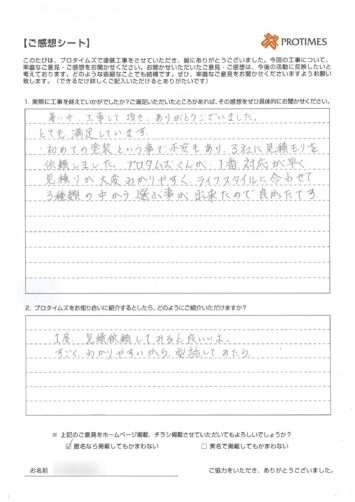 【ご感想シート】
PROTIMES
このたびは、プロタイムズで塗装工事をさせていただき、誠にありがとうございました。今回の工事について、
率直なご意見・ご感想をお聞かせください。お聞かせいただいたご意見・ご感想は、今後の活動に反映したいと
考えております。どのような些細なことでも結構です。ぜひ、率直なご意見をお聞かせくださいますようお願い
致します。（できるだけ詳しくご記入いただけるとありがたいです）
1. 実際に工事を終えていかがでしたか?ご満足いただいたところがあれば、その感想をぜひ具体的にお聞かせください。
暑い中、工事して頂き、ありがとうございました。
とても満足しています。
初めての塗装という事で不安もあり、3社に見積もりを
依頼しました。プロタイムズさんが、1番対応が早く
見積りが大変わかりやすく、ライフスタイルに合わせて
3種類の中から選ぶ事が出来たので良かったです。
2. プロタイムズをお知り合いに紹介するとしたら、どのようにご紹介いただけますか?
1度、見積依頼してみると良いよ。
すごく、わかりやすいから、電話してみたら。
※ 上記のご意見をホームページ掲載、チラシ掲載させていただいてもよろしいでしょうか?
☑ 匿名なら掲載してもかまわない　□ 実名で掲載してもかまわない
お名前
ご協力をいただき、ありがとうございました。